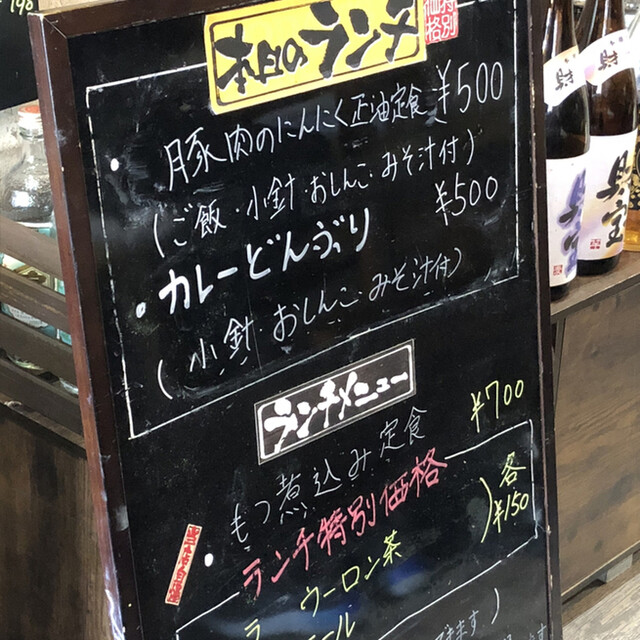 本日のランチ
特別価格
・豚肉のにんにく正油定食 ¥500
(ご飯・小針・おしんこ・みそ汁付)
・カレーどんぶり ¥500
(小針・おしんこ・みそ汁付)
ランチメニュー
・もつ煮込み定食 ¥700
ランチ特別価格
ウーロン茶
各
¥150